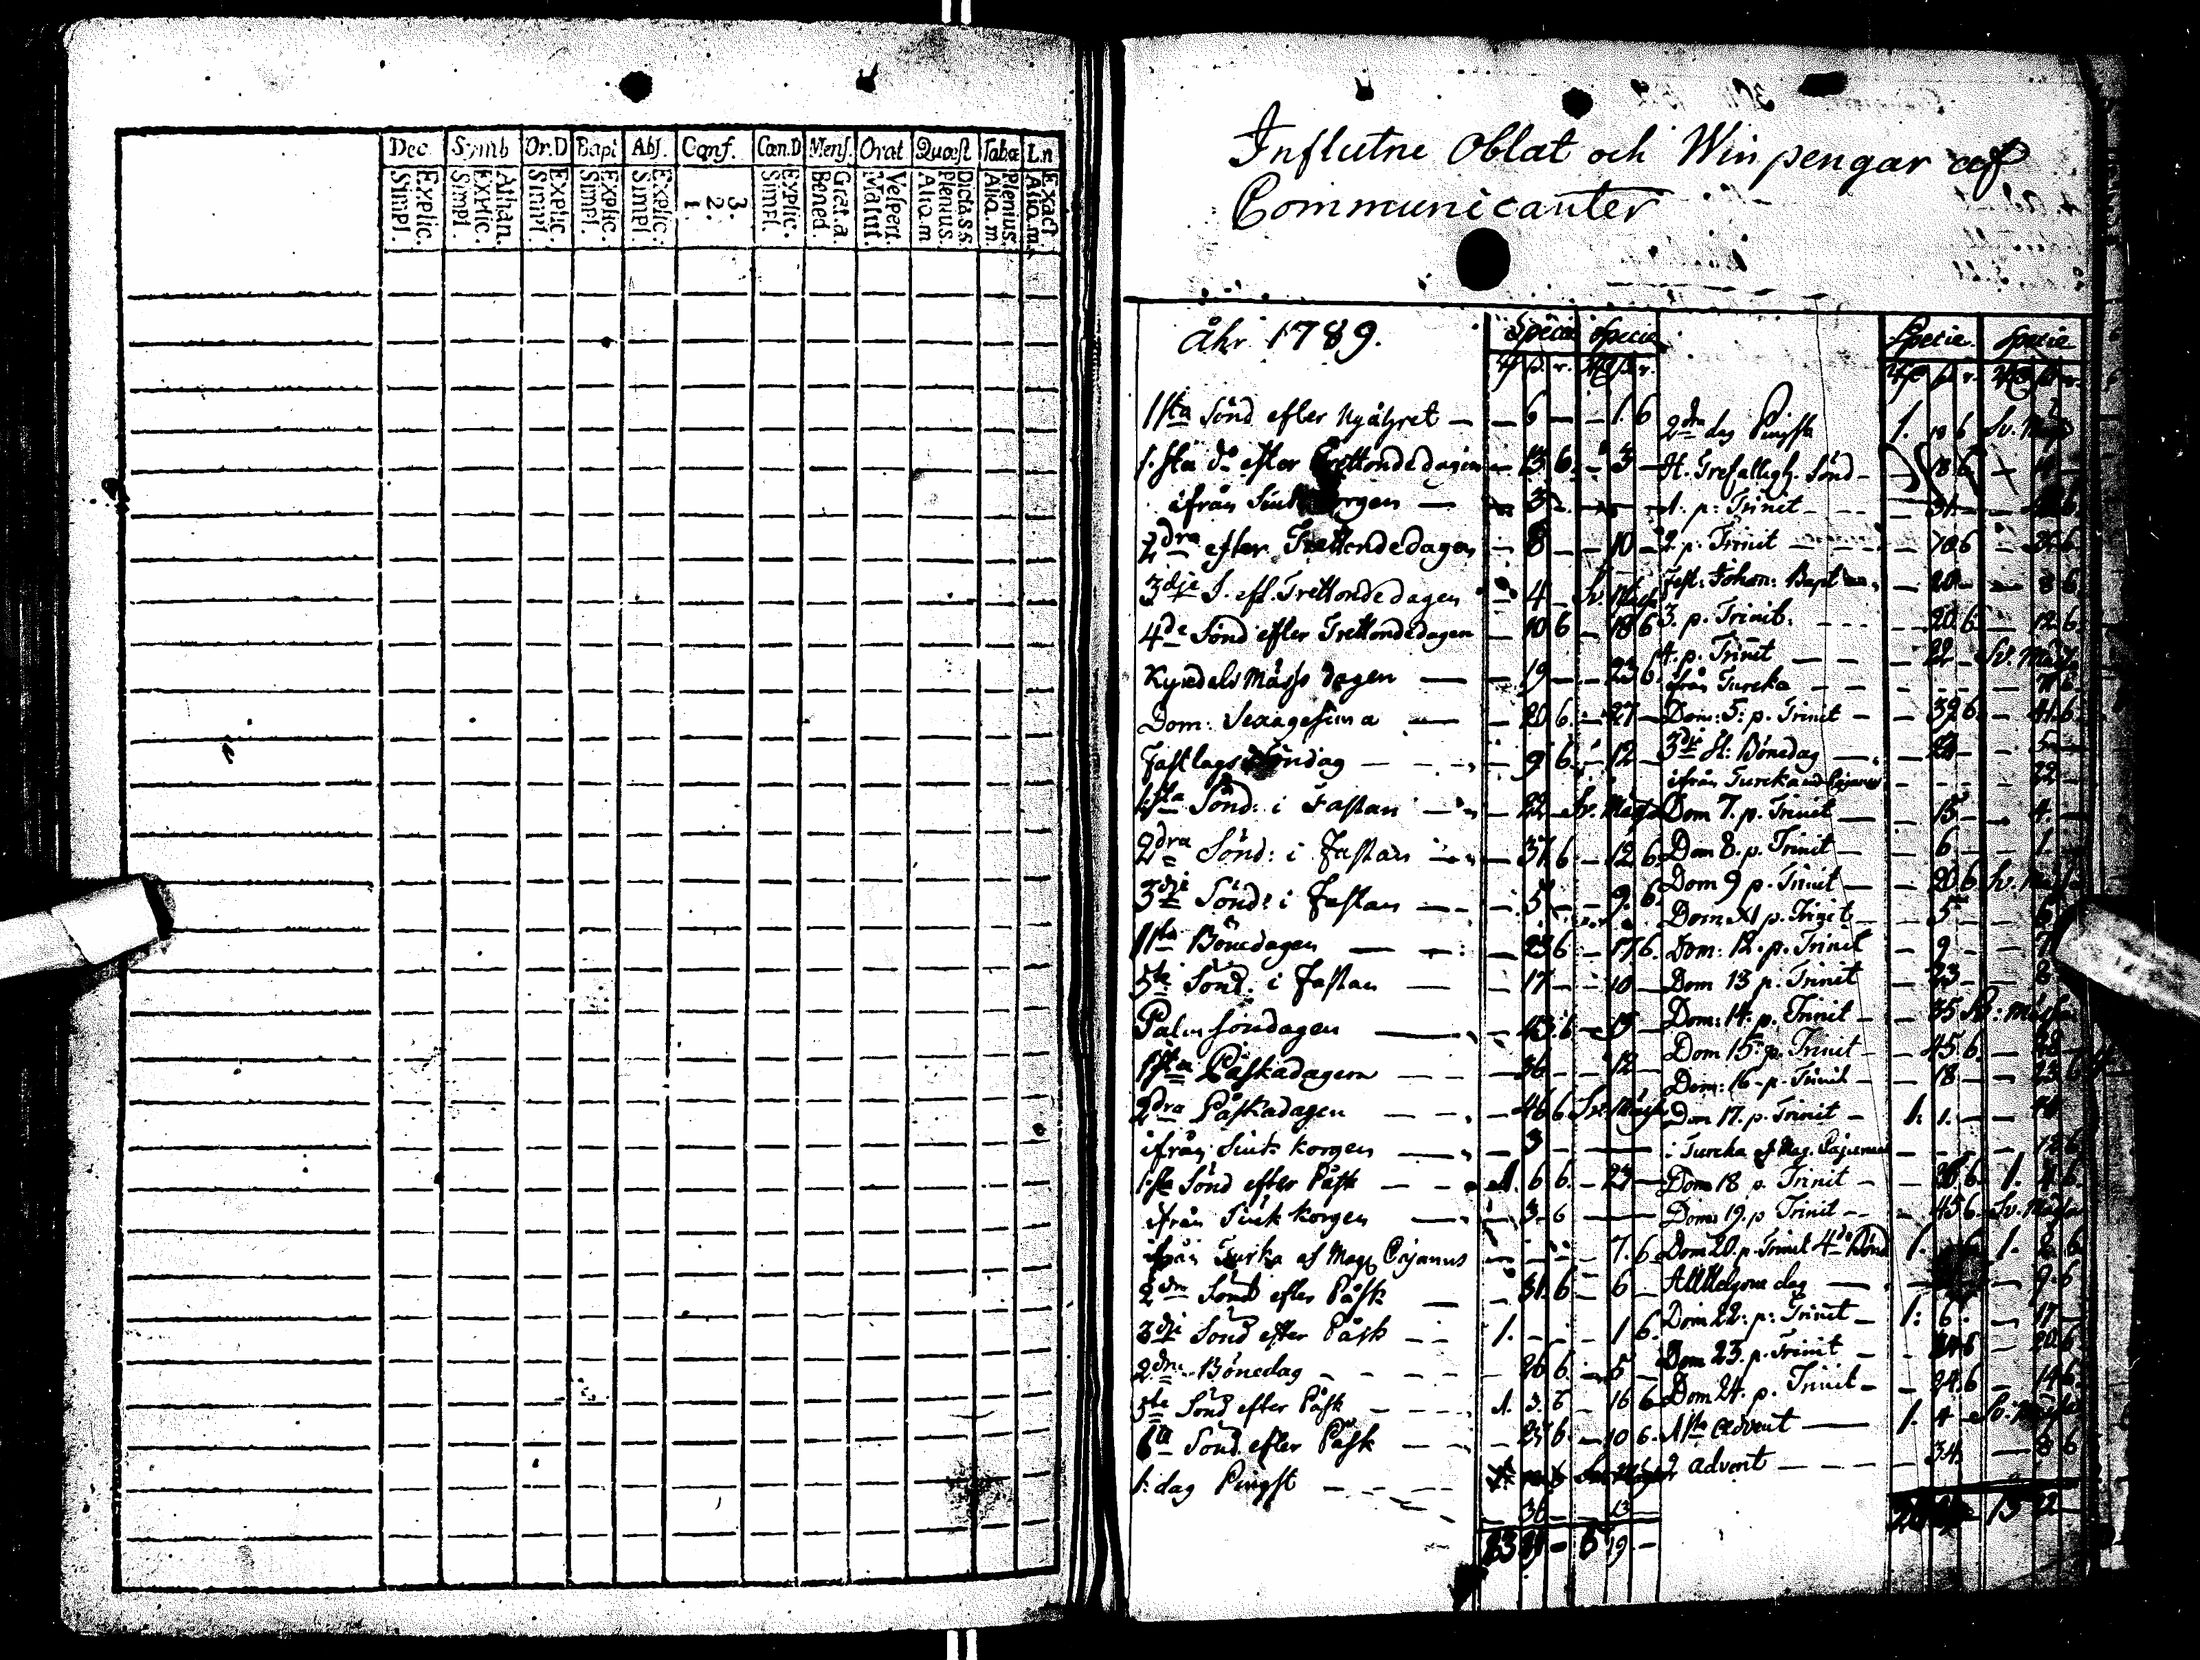 Dec Symb Or.D Bapt Abs. Conf. Cœn.D Mens. Orat Quæst Tabœ Ln
Explic. Simpl.
Athan. Explic. Simpl.
Explic. Simpl.
Explic. Simpl.
Explic. Simpl.
3. 2. 1.
Explic. Simpl.
Grat.a. Bened.
Vespert. Matut.
Dicta.s.s. Plenius. Aliq.m
Plenius. Aliq.m.
Exact. Aliq.m.
Influtne Oblat och Win pengar af
Communicanter
åhr 1789. Specie Specie
1sta Sönd efter Nyåhret — — 6 — — 1. 6
1.sta do efter Trettondedagen — 13 6. — 3 —
ifrån — 3
2dra efter Trettondedagen — 8 — — 10 —
3dje S. eft. Trettondedagen — 4 — Sv. Mässa
4de Sönd efter Trettondedagen — 10 6 — 18 6
Kyndels Mässo dagen — — 19 — — 23 6
Dom: Sexagesima — — 20 6. — 27 —
Fastlags Söndag — — 9 6. — 12 —
1:sta Sönd: i Fastan — 22 — Sv. Mässa
2dra Sönd: i Fastan — 37 6 — 12 6
3dje Sönd: i Fastan — — 5 — — 9. 6.
1sta Bönedagen — — 23 6 — 17 6.
5te Sönd: i Fastan — — 17 — — 10 —
Palm söndagen — — 43. 6 — 15 —
1sta Påskadagen — — 36 — — 12 —
2dra Påskadagen — — 46 6 Sv. Mässa
ifrån korgen — — 3 —
1:sta Sönd efter Påsk — — 1. 6 6. — 23 —
ifrån korgen — — 3 6 —
ifrån Turka af Mag Cajanus — 7. 6
2dra Sönd efter Påsk — — 31. 6 — 6 —
3dje Sönd efter Påsk — 1. — — 1 6.
2dra Bönedag — — 26 6. — 5 —
5te Sönd efter Påsk — — 1. 3. 6 — 16 6
6te Sönd. efter Påsk — — 23 6. — 10 6.
1: dag Pingst — —
36 — — 13 —
6 19 —
Specie. Specie
2dra dag Pingst 1. 10 6 Sv. Mässa
H. Trefaldigh. Sönd — 18 6
1. p: Trinit — — 31. —
2 p. Trinit — —
Fest: Johan: Bapt — 20 — — 8 6
3. p. Trinit. — — 20. 6. — 12 6.
4. p. Trinit — — 22 — Sv. Mässa
ifrån Tureka — —
Dom: 5: p. Trinit — — 39 6 — 41. 6.
3dje St: Bönedag — 22 — — 5 —
ifrån Tureka Cajanus 22 —
Dom 7. p. Trinit — — 15 — — 4. —
Dom 8. p. Trinit — — 6 — — 1. —
Dom 9 p. Trinit — — 20 6 Sv. Mässa
Dom. XI p. Trinit — — 5 —
Dom: 12. p. Trinit — 9 —
Dom 13 p. Trinit — 23 — 8
Dom: 14. p. Trinit — — 35 Sv: Mässa
Dom 15. p. Trinit — — 45 6. —
Dom: 16. p. Trinit — — 18. — — 23 6
Dom 17. p. Trinit — 1. 1. —
i Tureka af Mag. Cajanus
Dom 18 p. Trinit — 1.
Dom 19. p Trinit — — 45 6 Sv. Mässa
Dom 20. p. Trinit 4de Böned 1. 1.
All Helgona dag — — 9. 6
Dom 22. p: Trinit — 1: 6. — 17 —
Dom 23. p. Trinit — — 20 6
Dom 24. p. Trinit — — 24. 6 — 14 6.
1sta Advent — 1. 4 — Sv. Mässa
2 Advent — — 34. — 8 6
13 22 —